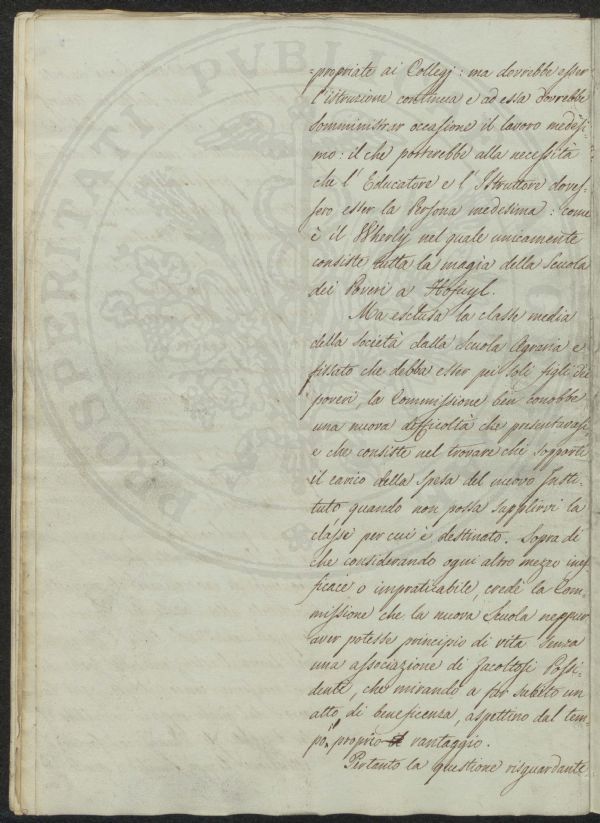 propriate ai Collegj: ma dovrebbe esser
l'istruzione continua e ad essa dovrebbe
somministrar occasione il lavoro medesi-
mo: il che porterebbe alla necessità
che l'Educatore e l'Istruttore doves-
sero esser la Persona medesima: come
è il Wherly nel quale unicamente
consiste tutta la magia della Scuola
dei Poveri a Hofwyl.
Ma esclusa la classe media
della società dalla Scuola Agraria e
fissato che debba esser pei soli figli dei
poveri, la Commissione ben conobbe
una nuova difficoltà che presentavasi
e che consiste nel trovare chi sopporti
il carico della spesa del nuovo Insti-
tuto quando non possa supplirvi la
classe per cui è destinato. Sopra di
che considerando ogni altro mezzo inef-
ficace o impraticabile, crede la Com-
missione che la nuova Scuola neppur
aver potesse principio di vita senza
una associazione di facoltosi Possi-
denti, che mirando a far subito un
atto di beneficenza, aspettino dal tem-
po il proprio vantaggio.
Pertanto la questione risguardante
PROSPERITATI PVBLI